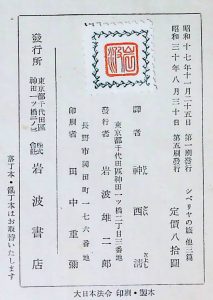 シベリヤの旅 他三篇
定價八拾圓
昭和十七年十一月二十五日 第一刷發行
昭和三十年八月三十日 第五刷發行
譯者 神西清
東京都千代田區神田一ツ橋二丁目三番地
發行者 岩波雄二郎
長野市岡田町一七六番地
印刷者 田中重彌
東京都千代田區
神田一ツ橋二ノ三
發行所 株式會社 岩波書店
落丁本・亂丁本はお取替いたします
大日本法令 印刷・製本